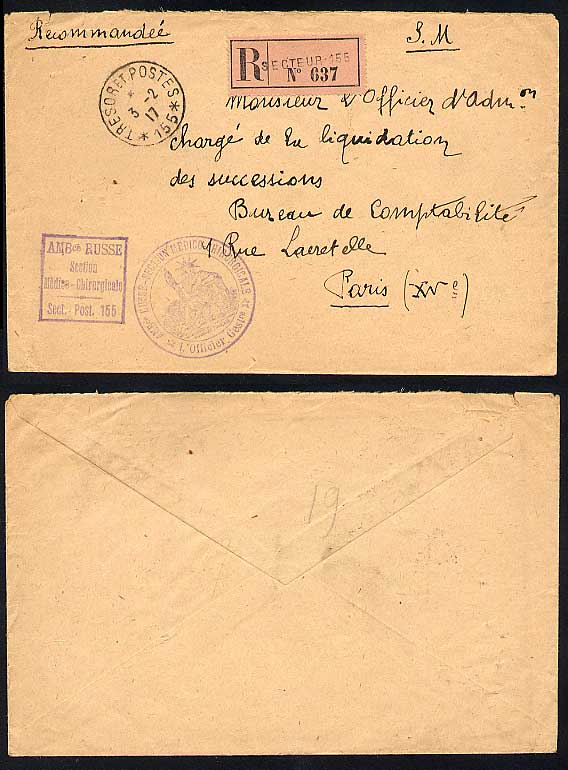 Recommandée
S. M
R
SECTEUR-155
N° 637
TRESOR ET POSTES
* 155 *
3 -2
17
Monsieur l'Officier d'Adm.on
chargé de la liquidation
des successions
Bureau de Comptabilité
1 Rue Lacretelle
Paris (XVe)
AMBce RUSSE
Section
Médico-Chirurgicale
Sect. Post. 155
AMBce RUSSE-SECTION MEDICO-CHIRURGICALE
L'Officier Gestre
19